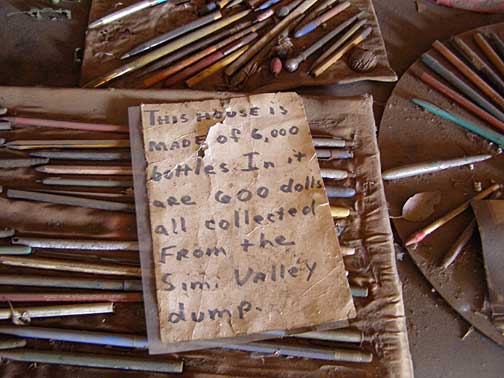 THIS HOUSE IS
MADE OF 6,000
bottles. In it
are 600 dolls
all collected
From the
Simi Valley
dump.